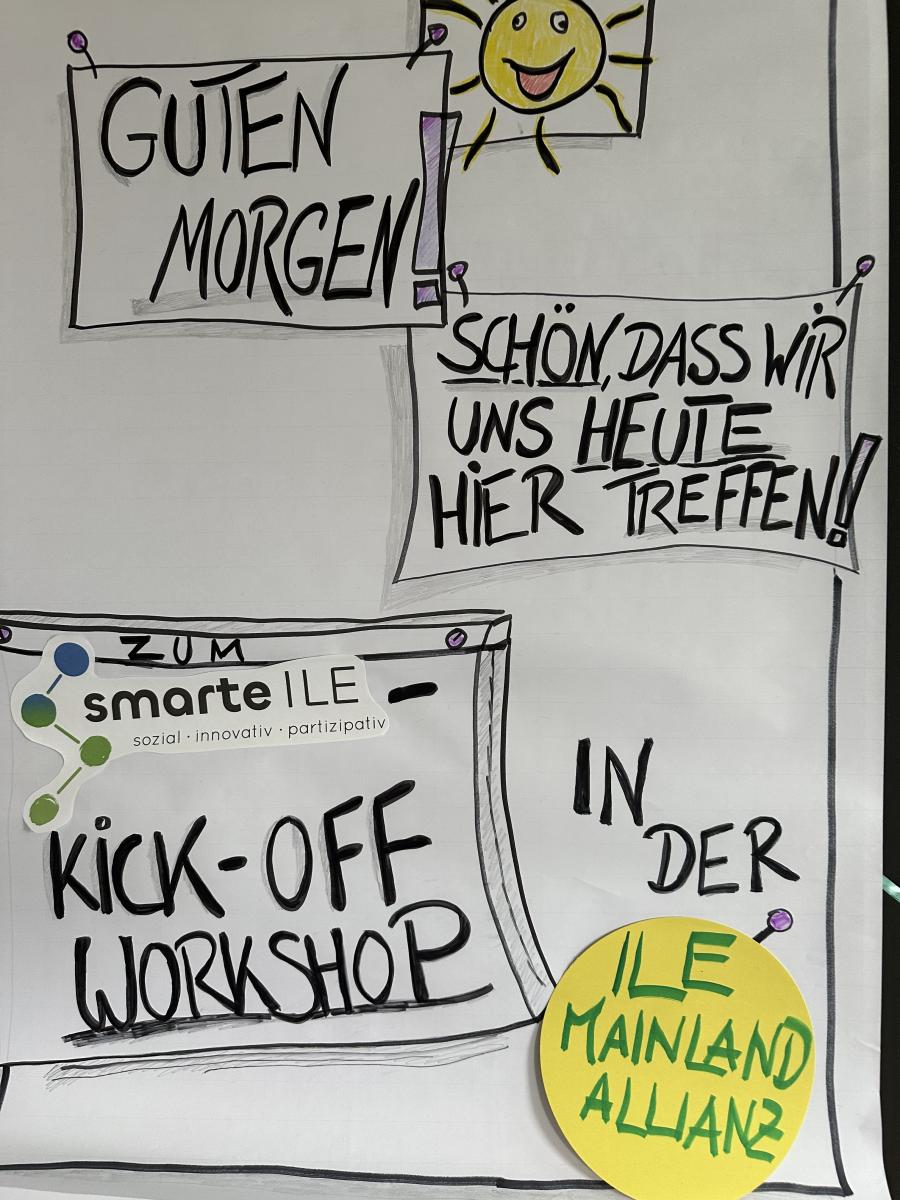 GUTEN
MORGEN!
SCHÖN, DASS WIR
UNS HEUTE
HIER TREFFEN!
ZUM
smarte ILE -
sozial · innovativ · partizipativ
KICK-OFF
WORKSHOP
IN
DER
ILE
MAINLAND
ALLIANZ